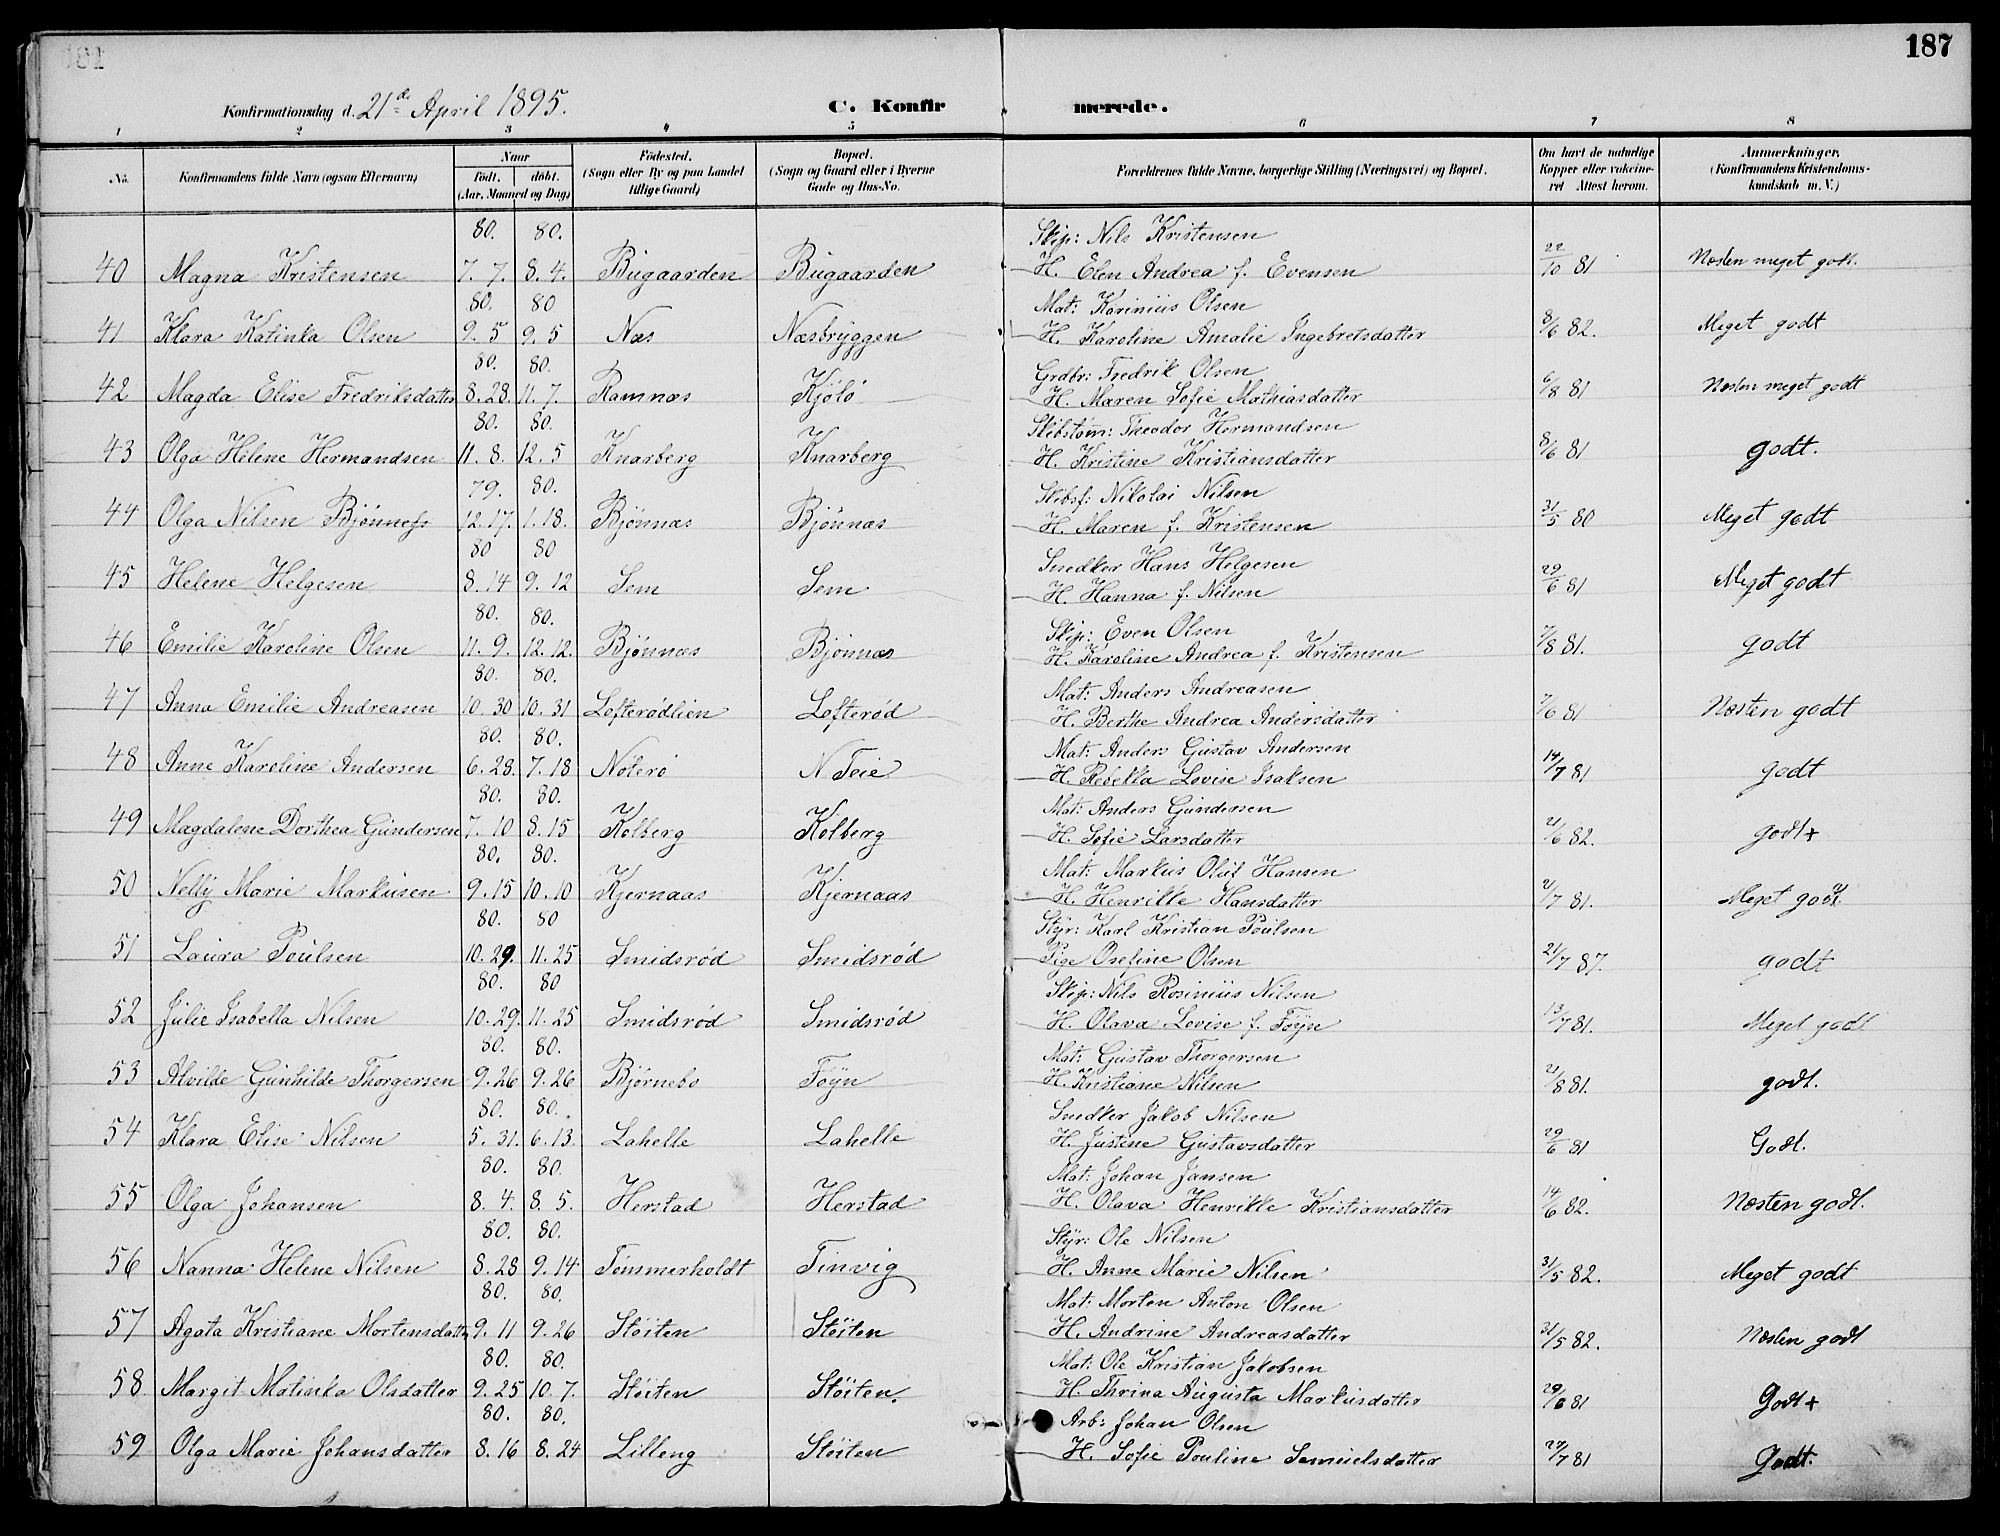 187
Konfirmationsdag d. 21de April 1895.
C. Konfirmerede.
1 2 3 4 5 6 7 8
No. Konfirmandens fulde Navn (ogsaa Efternavn) Naar födt. döbt. (Aar, Maaned og Dag) Födested. (Sogn eller By og paa Landet tillige Gaard) Bopæl. (Sogn og Gaard eller i Byerne Gade og Hus-No. Forældrenes fulde Navne, borgerlige Stilling (Næringsvei) og Bopæl. Om havt de naturlige Kopper eller vakcineret Attest herom. Anmærkninger. (Konfirmandens Kristendomskundskab m. V.)
80. 80. Skip: Nils Kristensen
40 Magna Kristensen 7. 7. 8. 4. Bugaarden Bugaarden H. Elen Andrea f. Evensen 22/10 81 Næsten meget godt.
80. 80 Mat: Karinius Olsen
41 Klara Katinka Olsen 9. 5 9. 5 Næs Næsbryggen H. Karoline Amalie Ingebretsdatter 8/6 82. Meget godt
80. 80. Grdbr: Fredrik Olsen
42 Magda Elise Fredriksdatter 8. 28. 11. 7. Ramnæs Kjölö H. Maren Sofie Mathiasdatter 6/8 81 Næsten meget godt
80. 80. Skibstøm: Theodor Hermandsen
43 Olga Helene Hermandsen 11. 8. 12. 5 Knarberg Knarberg H. Kristine Kristiansdatter 8/6 81 godt.
79. 80. Skibsf: Nikolai Nilsen
44 Olga Nilsen Bjönness 12. 17. 1. 18. Bjönnæs Bjönnæs H. Maren f. Kristensen 31/5 80 Meget godt
80 80 Snedker Hans Helgesen
45 Helene Helgesen 8. 14 9. 12 Sem Sem H. Hanna f. Nilsen 29/6 81 Meget godt
80. 80. Skip: Even Olsen
46 Emilie Karoline Olsen 11. 9. 12. 12. Bjönnæs Bjönnæs H. Karoline Andrea f. Kristensen 7/8 81. godt
80. 80. Mat: Anders Andreasen
47 Anna Emilie Andreasen 10. 30 10. 31 Lofterødlien Lofterød H. Berthe Andrea Andersdatter 7/6 81 Næsten godt
80. 80. Mat: Anders Gustav Andersen
48 Anne Karoline Andersen 6. 28. 7. 18 Noterø N Teie H. Rebekka Lovise Isaksen 14/7 81 godt
80. 80. Mat: Anders Gundersen
49 Magdalene Dorthea Gundersen 7. 10 8. 15 Kolberg Kolberg H. Sofie Larsdatter 21/6 82. godt+
80. 80. Mat: Markus Oluf Hansen
50 Nelly Marie Markusen 9. 15 10. 10 Kjernaas Kjernaas H. Henrikke Hansdatter 21/7 81. Meget godt
80. 80 Styr: Karl Kristian Poulsen
51 Laura Poulsen 10. 29. 11. 25 Smidsrød Smidsrød Pige Osefine Olsen 21/7 87. godt
80. 80 Skip: Nils Rosinius Nilsen
52 Julie Isabella Nilsen 10. 29. 11. 25 Smidsrød Smidsrød H. Olava Lovise f. Föyn 13/7 81. Meget godt
80. 80. Mat: Gustav Thorgersen
53 Alvilde Gunhilde Thorgersen 9. 26 9. 26 Bjørnebo Föyn H. Kristiane Nilsen 21/8 81. godt.
80. 80. Snedker Jakob Nilsen
54 Klara Elise Nilsen 5. 31. 6. 13. Lahelle Lahelle H. Justine Gustavsdatter 29/6 81 Godt.
80. 80. Mat: Johan Jansen
55 Olga Johansen 8. 4. 8. 5. Herstad Herstad H. Olava Henrikke Kristiansdatter 14/6 82. Næsten godt.
80. 80. Styr: Ole Nilsen
56 Nanna Helene Nilsen 8. 28 9. 14 Tømmerholdt Tinvig H. Anne Marie Nilsen 31/5 82. Meget godt
80. 80. Mat: Morten Anton Olsen
57 Agata Kristiane Mortensdatter 9. 11 9. 26 Støiten Støiten H. Andrine Andreasdatter 31/5 82. Næsten godt
80. 80. Mat: Ole Kristian Jakobsen
58 Margit Matinka Olsdatter 9. 25 10. 7. Støiten Støiten. H. Thrina Augusta Markusdatter 29/6 81 Godt+
80. 80. Arb: Johan Olsen
59 Olga Marie Johansdatter 8. 16 8. 24 Lilleng Støiten H. Sofie Pouline Samuelsdatter 27/7 81 Godt.